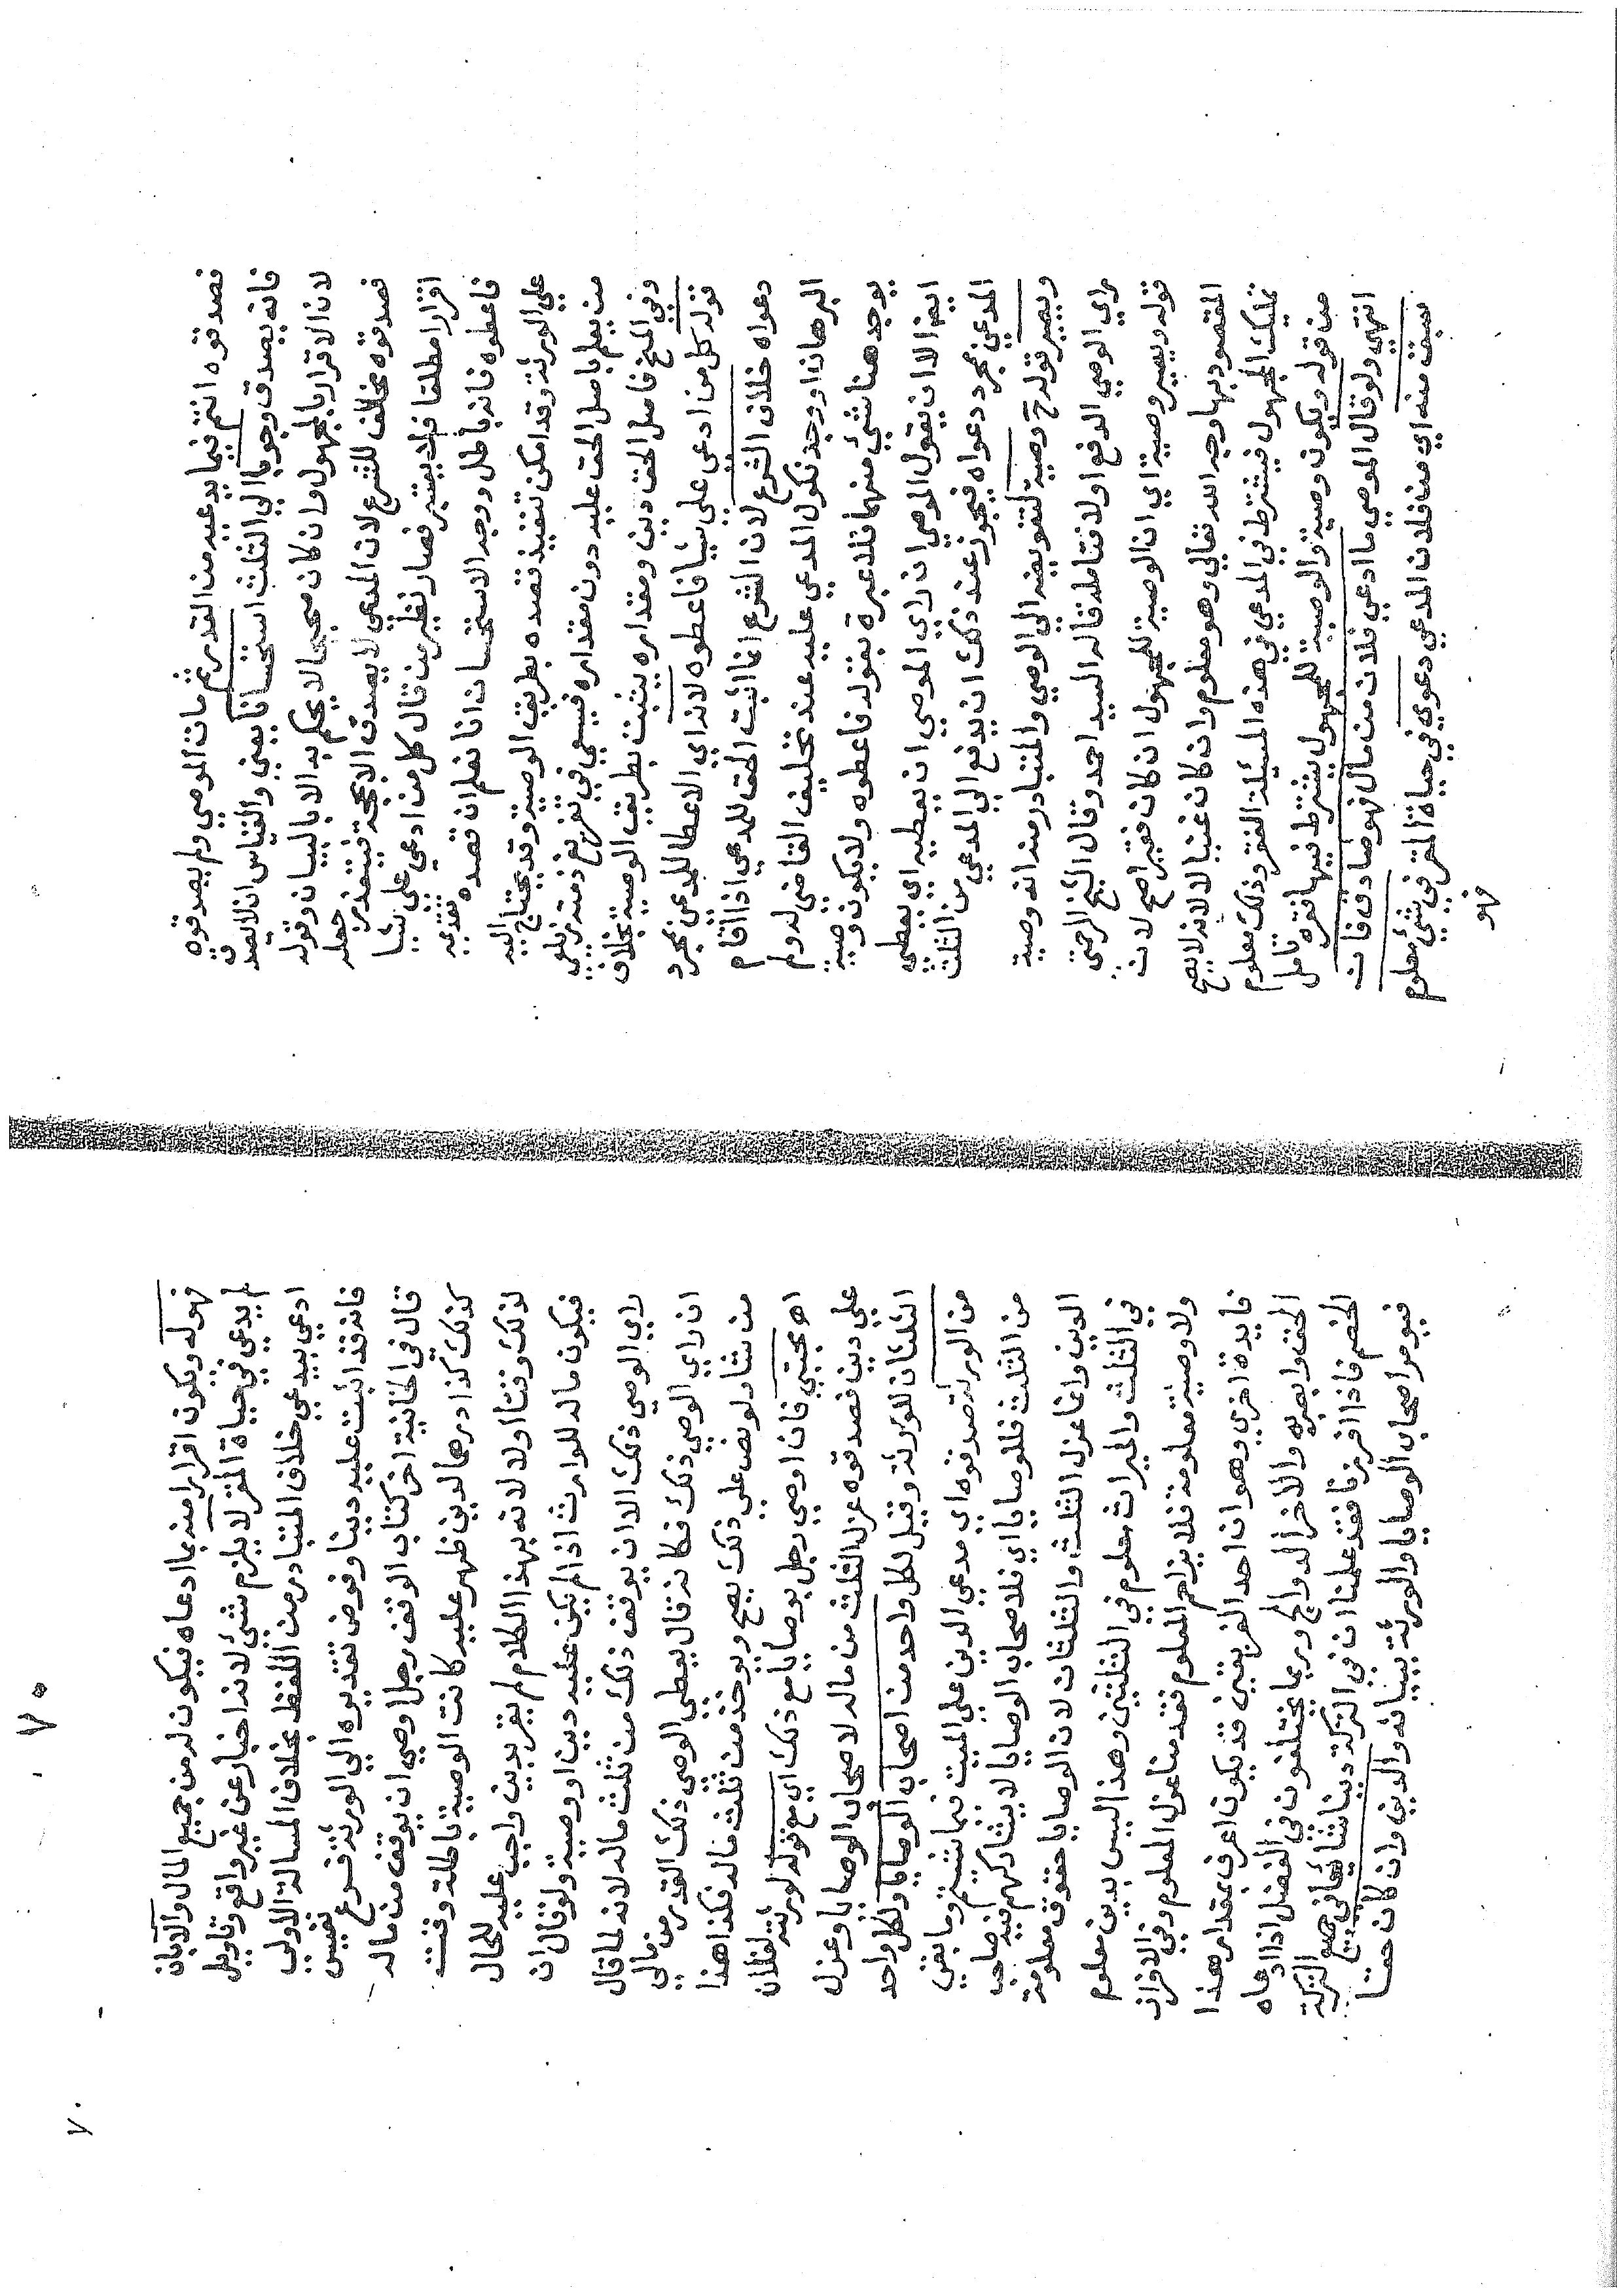 فصدقوه انتم فيما يدعيه من القدر ثم مات الموصي ولم يصدقوه
فانه يصدق وجوبا الي الثلث استحسانا يعني والقياس ان لا يصدق
لان الاقرار بالمجهول وان كان صحيحا لا يحكم به الا بالبيان وقوله
فصدقوه مخالف للشرع لان المدعي لا يصدق الا بحجة فيتعذر جعله
اقرارا مطلقا فلا يعتبر فصار نظير من قال كل من ادعي علي شيا
فاعطوه فانه باطل ووجه الاستحسان انا نعلم ان قصده تقديمه
علي الورثة وقد امكن تنفيذ قصده بطريق الوصية وقد يحتاج اليه
من يعلم باصل الحق عليه دون مقداره فيسعي في تفريغ ذمته زيلعي
وفي المنح فاصل الحق دين ومقداره يثبت بطريق الوصية بخلاف
قوله كل من ادعي علي شيا فاعطوه لانه اي الاعطا للمدعي بمجرد
دعواه خلاف الشرع لان الشرع انما اثبت الحق للمدعي اذا اقام
البرهان او وجد نكول المدعي عليه عند تحليف القاضي له ولم
يوجد هنا شيء منهما فلا عبرة بقوله فاعطوه ولا يكون وصية
ايضا الا ان يقول الموصي ان راي الموصي ان يعطيه اي يعطي
المدعي بمجرد دعواه فيجوز عند ذلك ان يدفع الي المدعي من الثلث
ويصير قوله ح وصية لتفويضه الي الوصي والمتبادر منه انه وصية
راي الوصي الدفع اولا فتامله قاله السيد احمد وقال الشيخ الرحمتي
قوله ويصير وصية اي ان الوصية للمجهول ان كان فقيرا صح لان
المقصود بها وجه الله تعالي وهو معلوم وان كان غنيا لا لانه لا يصح
تمليك المجهول فيشترط في المدعي في هذه المسئلة الفقر وذلك معلوم
من قوله ويكون وصية والوصية للمجهول يشترط فيها فقره تامل
انتهي ولو قال الموصي ما ادعي فلان من مال فهو صادق فان
سبق منه اي من فلان المدعي دعوي في حياة المقر في شيء معلوم
فهو
٧٠
فهو له ويكون اقرارا منه بما ادعاه فيكون له من جميع المال والا بان
لم يدعي في حياة المقر لا يلزم شيء لانه اخبار عن غير واقع وتاويل
ادعي بيدعي خلاف المتبادر من اللفظ بخلاف المسالة الاولي
فانه قد اثبت عليه دينا وفوض تقديره الي الورثة فروع نفيس
قال في الخانية اخر كتاب الوقف رجل اوصي ان يوقف من ماله
كذلك كذا درهما لدين ظهر عليه كانت الوصية باطلة وقت
لذلك وقتا اولا لانه بهذا الكلام لم يقر بدين واجب عليه للحال
فيكون ماله للوارث اذا لم يكن عليه دين او وصية ولو قال ان
راي الوصي ذلك الا ان يوقف ذلك من ثلث ماله لانه لما قال
ان راي الوصي ذلك فكانه قال يعطي الوصي ذلك القدر من مالي
من شا ولو نص علي ذلك يصح ويوخذ من ثلث ماله فكذا هذا
اه مجتبي فان اوصي رجل بوصايا مع ذلك اي مع قوله لورثته لفلان
علي دين فصدقوه عزل الثلث من ماله لاصحاب الوصايا وعزل
الثلثان للورثة وقيل لكل واحد من اصحاب الوصايا ولكل واحد
من الورثة صدقوه اي مدعي الدين علي الميت فيما شيتم وما بقي
من الثلث فللوصايا اي فلاصحاب الوصايا لا يشاركهم فيه صاحب
الدين وانما عزل الثلث والثلثان لان الوصايا حقوق معلومة
في الثلث والميراث معلوم في الثلثين وهذا ليس بدين معلوم
ولا وصية معلومة فلا يزاحم المعلوم فقدمنا عزل المعلوم وفي الافراز
فايدة اخري وهو ان احد الفريقين قد يكون اعرف بمقدار هذا
الحق وابصر به والاخر الد والج وربما يختلفون في الفضل اذا ادعاه
الخصم فاذا افرزنا فقد علمنا ان في التركة دينا شايعا في جميع التركة
فيومر اصحاب الوصايا والورثة ببيانه والدين وان كان حقا
٧٠